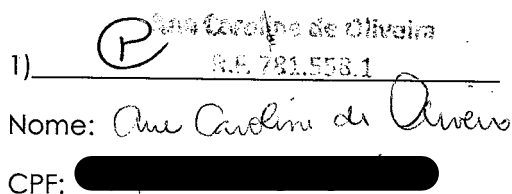 P Ana Caroline de Oliveira
1) R.F. 781.558.1
Nome: Ane Caroline de Oliveira
CPF: